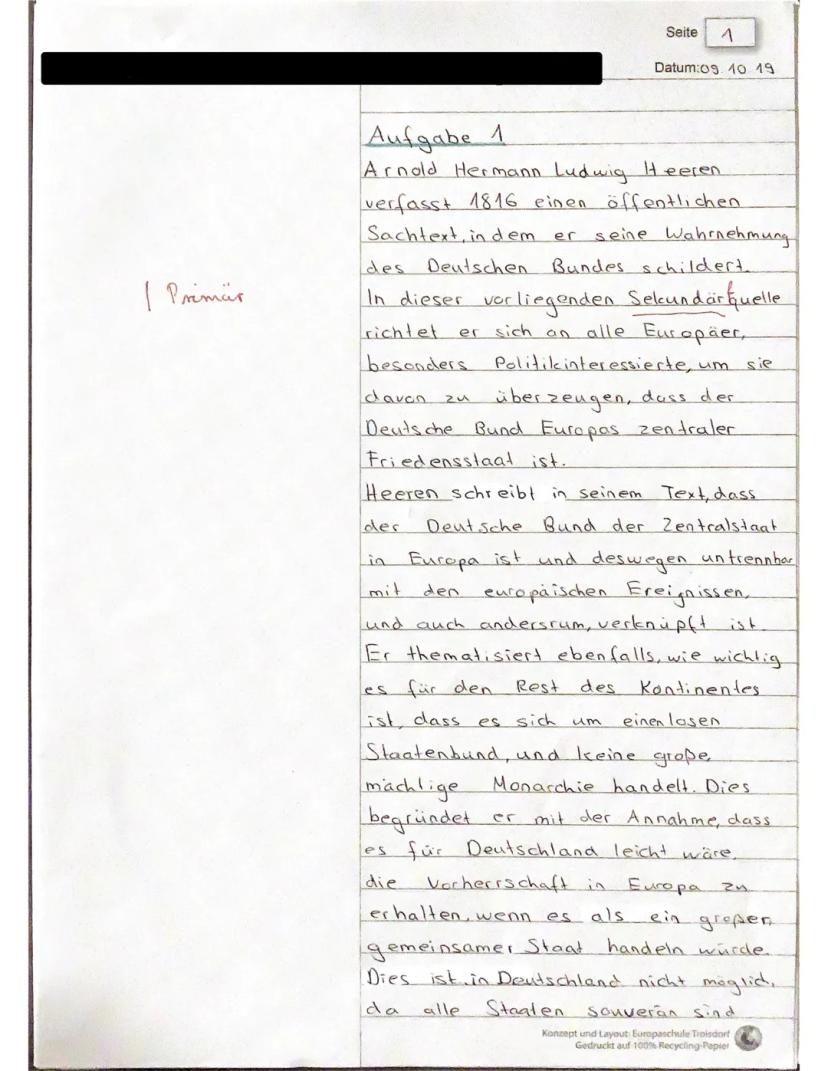 Seite 1
Datum: 09.10.19
Aufgabe 1
Arnold Hermann Ludwig Heeren
verfasst 1816 einen öffentlichen
Sachtext, in dem er seine Wahrnehmung
des Deutschen Bundes schildert.
| Primär
In dieser vorliegenden Sekundärquelle
richtet er sich an alle Europäer,
besonders Politikinteressierte, um sie
davon zu überzeugen, dass der
Deutsche Bund Europas zentraler
Friedensstaat ist.
Heeren schreibt in seinem Text, dass
der Deutsche Bund der Zentralstaat
in Europa ist und deswegen untrennbar
mit den europäischen Ereignissen,
und auch andersrum, verknüpft ist.
Er thematisiert ebenfalls, wie wichtig
es für den Rest des Kontinentes
ist, dass es sich um einen losen
Staatenbund, und keine große,
mächtige Monarchie handelt. Dies
begründet er mit der Annahme, dass
es für Deutschland leicht wäre,
die Vorherrschaft in Europa zu
erhalten, wenn es als ein großer,
gemeinsamer Staat handeln würde.
Dies ist in Deutschland nicht möglich,
da alle Staaten souverän sind
Konzept und Layout: Europaschule Troisdorf
Gedruckt auf 100% Recycling-Papier